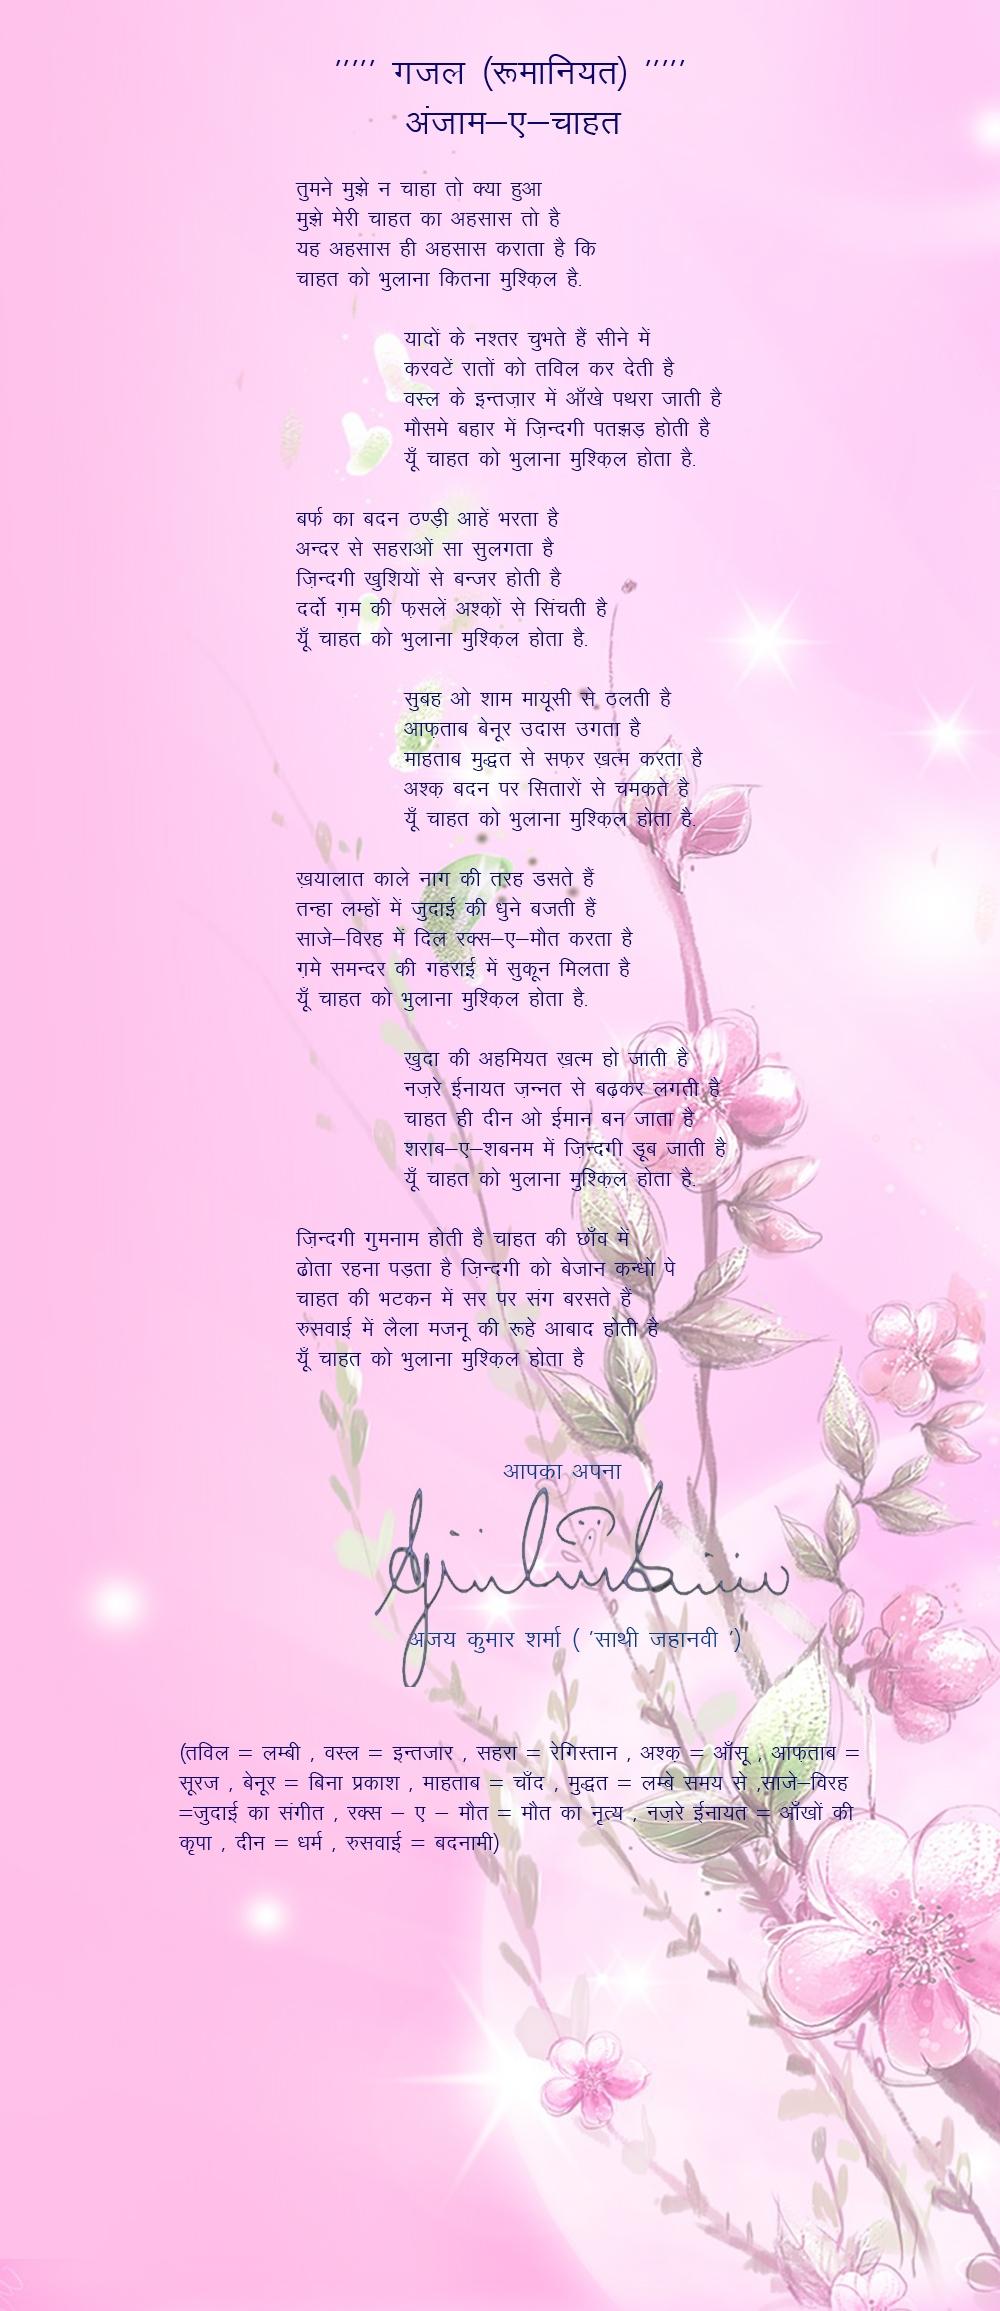 ''''' गजल (रूमानियत) '''''
अंजाम–ए–चाहत
तुमने मुझे न चाहा तो क्या हुआ
मुझे मेरी चाहत का अहसास तो है
यह अहसास ही अहसास कराता है कि
चाहत को भुलाना कितना मुश्क़िल है.
यादों के नश्तर चुभते हैं सीने में
करवटें रातों को तविल कर देती है
वस्ल के इन्तज़ार में आँखे पथरा जाती है
मौसमे बहार में ज़िन्दगी पतझड़ होती है
यूँ चाहत को भुलाना मुश्क़िल होता है.
बर्फ का बदन ठण्ड़ी आहें भरता है
अन्दर से सहराओं सा सुलगता है
ज़िन्दगी खुशियों से बन्जर होती है
दर्दो ग़म की फ़सलें अश्क़ों से सिंचती है
यूँ चाहत को भुलाना मुश्क़िल होता है.
सुबह ओ शाम मायूसी से ठलती है
आफ़ताब बेनूर उदास उगता है
माहताब मुद्धत से सफ़र ख़त्म करता है
अश्क़ बदन पर सितारों से चमकते है
यूँ चाहत को भुलाना मुश्क़िल होता है.
ख़यालात काले नाग की तरह डसते हैं
तन्हा लम्हों में जुदाई की धुने बजती हैं
साजे–विरह में दिल रक्स–ए–मौत करता है
ग़मे समन्दर की गहराई में सुकून मिलता है
यूँ चाहत को भुलाना मुश्क़िल होता है.
ख़ुदा की अहमियत ख़त्म हो जाती है
नज़रे ईनायत ज़न्नत से बढ़कर लगती है
चाहत ही दीन ओ ईमान बन जाता है
शराब–ए–शबनम में जिन्दगी डूब जाती है
यूँ चाहत को भुलाना मुश्क़िल होता है.
ज़िन्दगी गुमनाम होती है चाहत की छाँव में
ढोता रहना पड़ता है ज़िन्दगी को बेजान कन्धो पे
चाहत की भटकन में सर पर संग बरसते हैं
रुसवाई में लैला मजनू की रूहे आबाद होती है
यूँ चाहत को भुलाना मुश्क़िल होता है
आपका अपना
अजय कुमार शर्मा ( 'साथी जहानवी ')
(तविल = लम्बी , वस्ल = इन्तजार , सहरा = रेगिस्तान , अश्क़ = आँसू , आफ़ताब =
सूरज , बेनूर = बिना प्रकाश , माहताब = चाँद , मुद्धत = लम्बे समय से ,साजे–विरह
=जुदाई का संगीत , रक्स – ए – मौत = मौत का नृत्य , नज़रे ईनायत = आँखों की
कृपा , दीन = धर्म , रुसवाई = बदनामी)